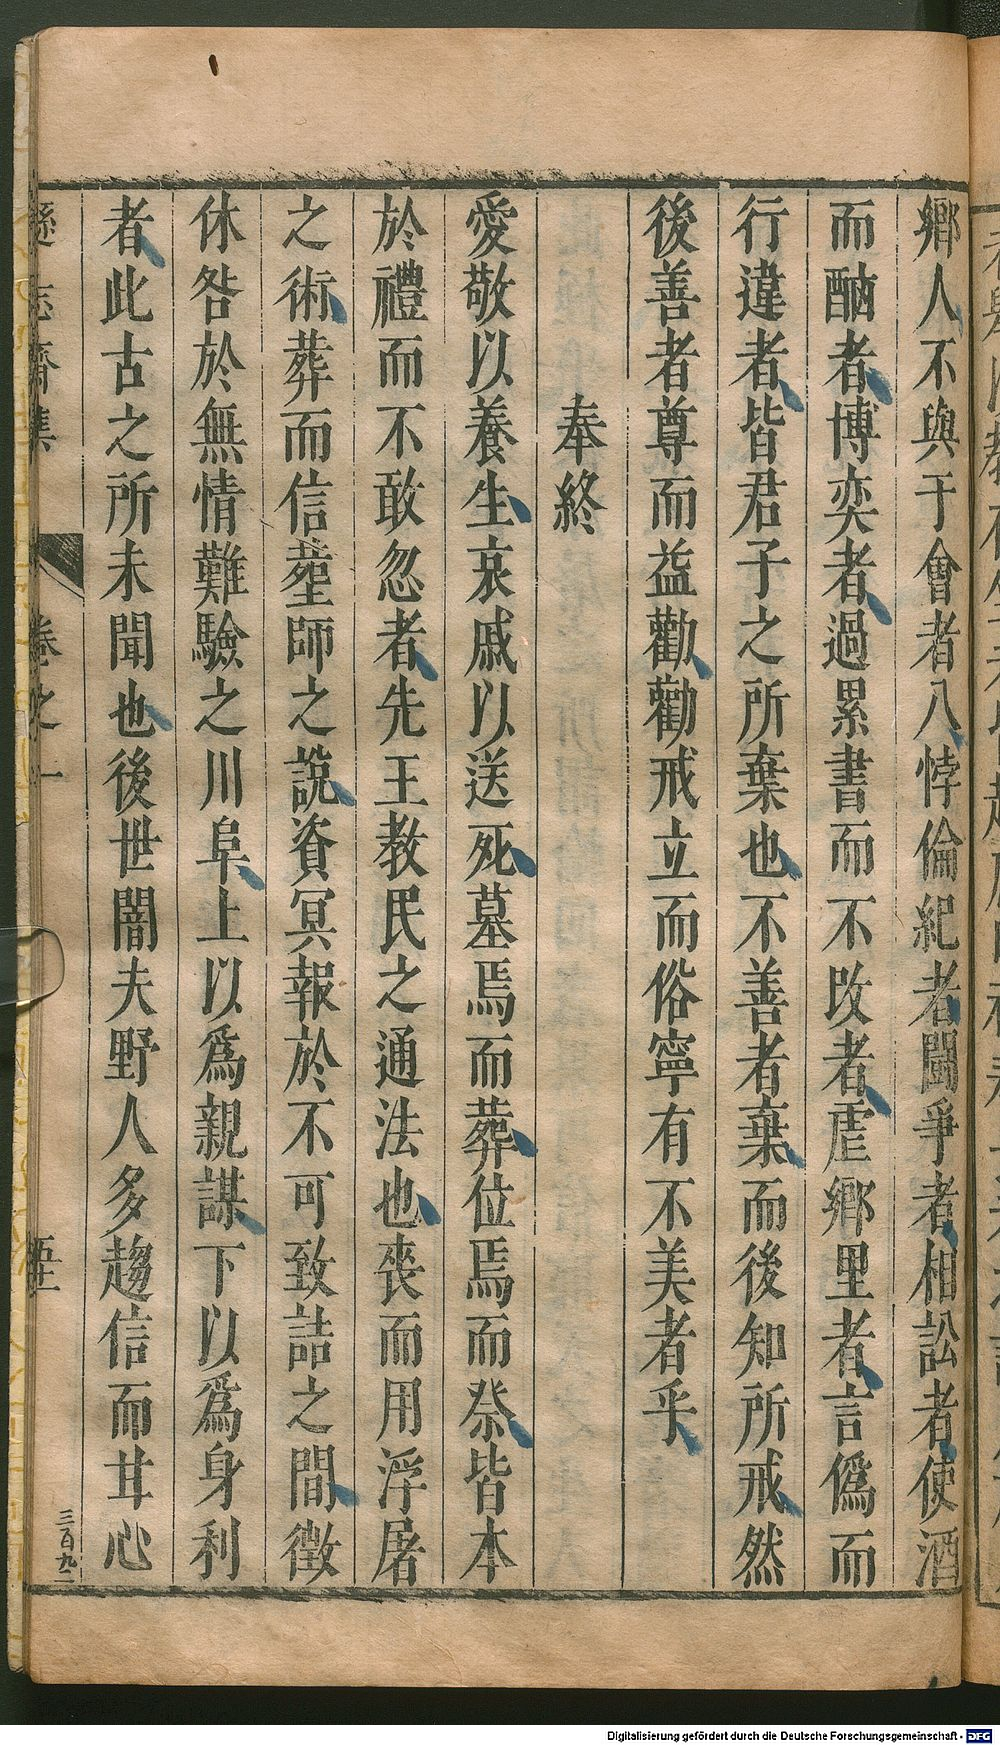 鄉人不與于會者八悖倫紀者鬪爭者相訟者使酒
而酗者博奕者過累書而不改者虐鄉里者言僞而
行違者皆君子之所棄也不善者棄而後知所戒然
後善者尊而益勸勸戒立而俗寧有不美者乎
奉終
愛敬以養生哀戚以送死墓焉而葬位焉而祭皆本
於禮而不敢忽者先王教民之通法也喪而用浮屠
之術葬而信塟師之說資冥報於不可致詰之間徵
休咎於無情難驗之川阜上以爲親謀下以爲身利
者此古之所未聞也後世闇夫野人多趨信而甘心
遜志齋集
卷之一
三百九二
Digitalisierung gefördert durch die Deutsche Forschungsgemeinschaft - DFG